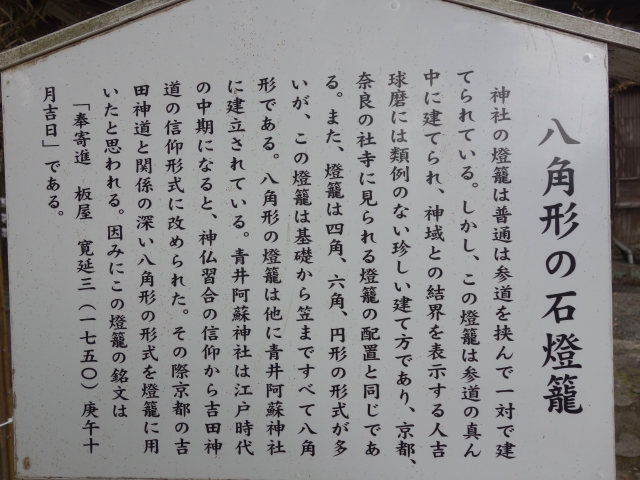 八角形の石燈籠
神社の燈籠は普通は参道を挟んで一対で建
てられている。しかし、この燈籠は参道の真ん
中に建てられ、神域との結界を表示する人吉
球磨には類例のない珍しい建て方であり、京都、
奈良の社寺に見られる燈籠の配置と同じであ
る。また、燈籠は四角、六角、円形の形式が多
いが、この燈籠は基礎から笠まですべて八角
形である。八角形の燈籠は他に青井阿蘇神社
に建立されている。青井阿蘇神社は江戸時代
の中期になると、神仏習合の信仰から吉田神
道の信仰形式に改められた。その際京都の吉
田神道と関係の深い八角形の形式を燈籠に用
いたと思われる。因みにこの燈籠の銘文は
「奉寄進 板屋 寛延三（一七五〇）庚午十
月吉日」である。